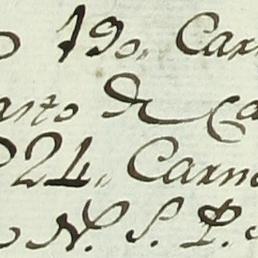 190. Car
asto de Ca
24. Carn
N. S. P.